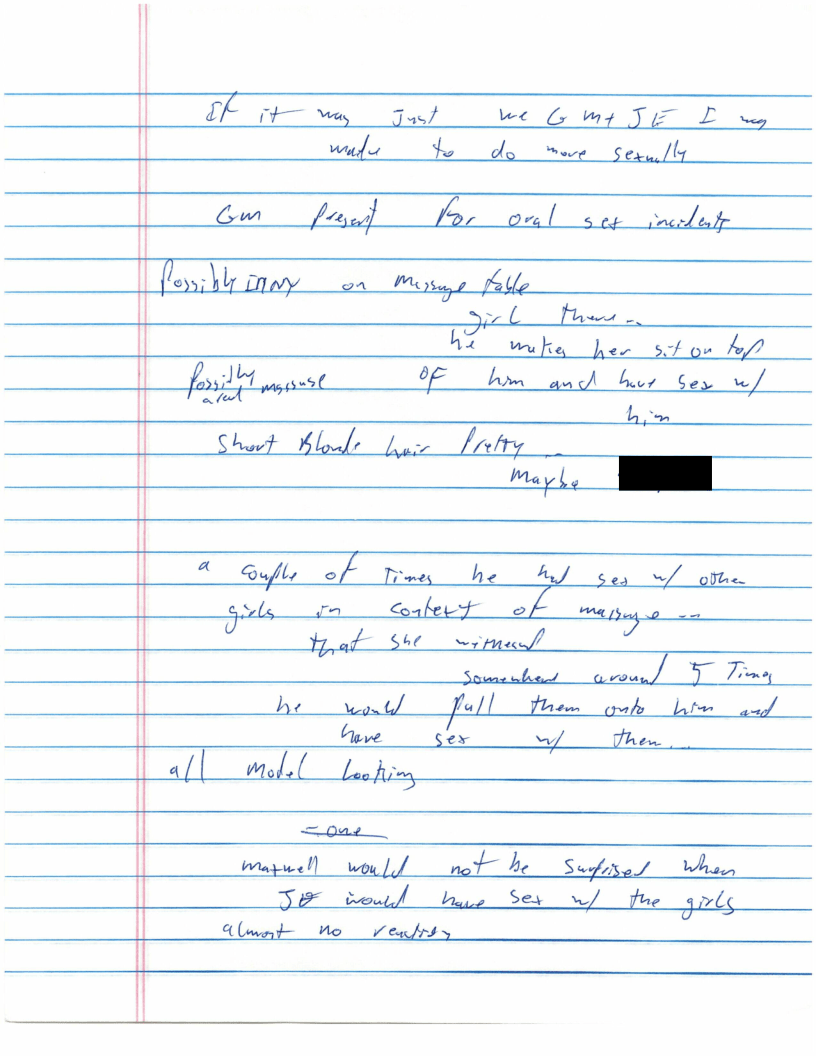 If it was Just me GM + JE I was
made to do more sexually
GM Present for oral sex incidents
Possibly in NY on massage table
girl there --
he makes her sit on top
Possibly massuse of him and have sex w/
area
him
Short Blonde hair Pretty --
Maybe
a couple of Times he had sex w/ other
girls in context of massage --
that she witnessed
somewhere around 5 Times
he would pull them onto him and
have sex w/ them...
all model looking
- one
maxwell would not be surprised when
JE would have sex w/ the girls
almost no reaction